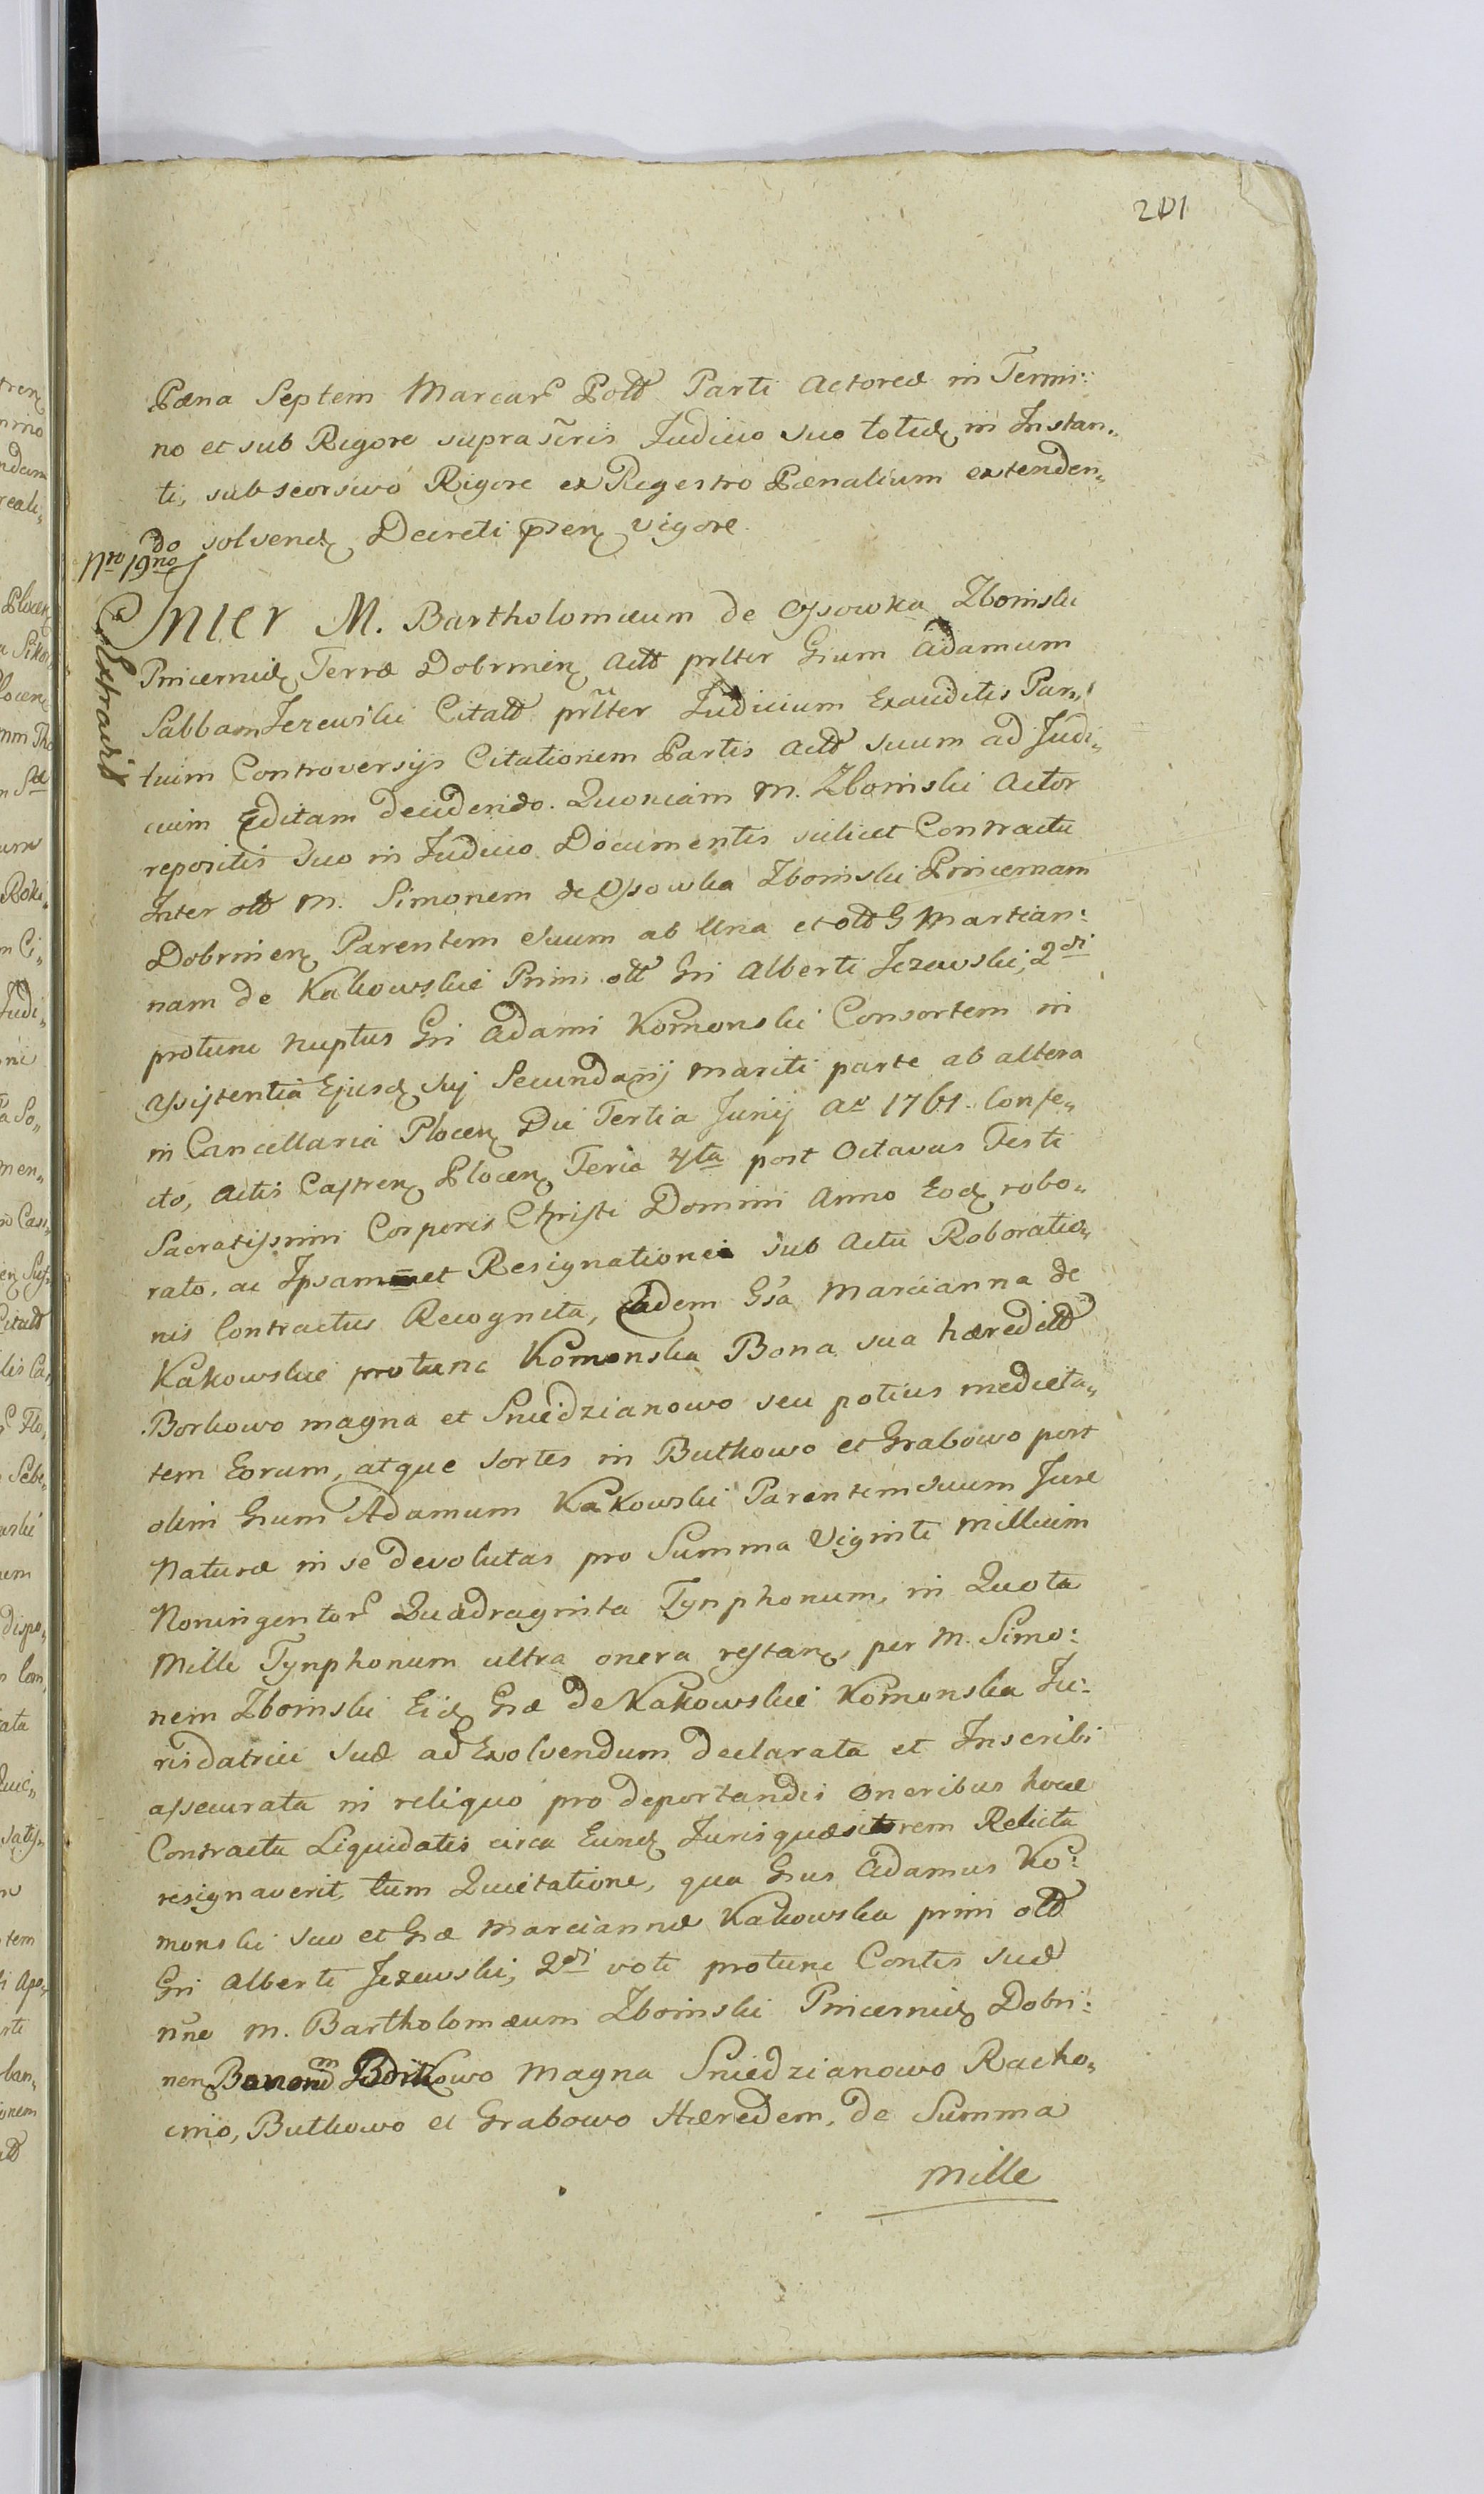 201
Pæna Septem Marcar Pold Parti Actoreæ in Termi:
no et sub Rigore supra scris Judicio suo totid in Instan„
ti, sub seorsivo Rigore ex Regestro Pænalium extenden„
do solvend Decreti psen vigore.
Nro 19no
Extradit
Inter M. Bartholomæum de Ossowka Zboinski
Pincernid Terræ Dobrinen Actt prlter Grum Adamum
Sabbam Jezewski Citatt prlter Judicium Exauditis Par„
tium Controversijs Citationem Partis Actt suum ad Judi„
cium Editam decidendo. Quoniam M. Zboinski Actor
repositis suo in Judicio Documentis scilicet Contractu
Inter olt M. Simonem de Ossowka Zboinski Pincernam
Dobrinen Parentem Suum ab Una et olt G Martian:
nam de Kakowskie Primi olt Gri Alberti Jezewski, 2di
protunc nuptus Gri Adami Komonski Consortem in
assistentia Ejusd sui Secundarij mariti parte ab altera
in Cancellaria Plocen Die Tertia Junij Ao 1761. Confe„
cto, Actis Castren Plocen Feria 4ta post Octavas Festi
Sacratissimi Corporis Christi Domini Anno Eod robo„
rato, ac Ipsammet Resignatione sub Actu Roboratio„
nis Contractus Recognita, Eadem Gsa Marcianna de
Kakowskie protunc Komonska Bona sua hæreditt
Borkowo magna et Sniedzianowo seu potius medieta„
tem Eorum, atque Sortes in Butkowo et Grabowo post
olim Grum Adamum Kakowski Parentem suum Jure
Naturæ in se devolutas pro Summa Viginti Millium
Noningentor Quadraginta Tynphonum, in Quota
Mille Tynphonum ultra onera restan, per M. Simo:
nem Zboinski Eid Græ de Kakowskie Komonska Ju:
risdatrici suæ ad Exolvendum declarata et Inscribi
assecurata in reliquo pro deportandis Oneribus hocce
Contractu Liquidatis circa Eund Jurisquæsitorem Relicta
resignaverit, tum Quietatione, qua Grus Adamus Ko:
monski suo et Græ Marciannæ Kakowska primi olt
Gri Alberti Jezewski, 2di voti protunc Contis suæ
nne M. Bartholomæum Zboinski Pincernid Dobri:
nen Bonorum Borkowo Magna Sniedzianowo Racho„
cino, Butkowo et Grabowo Hæredem, de Summa
Mille